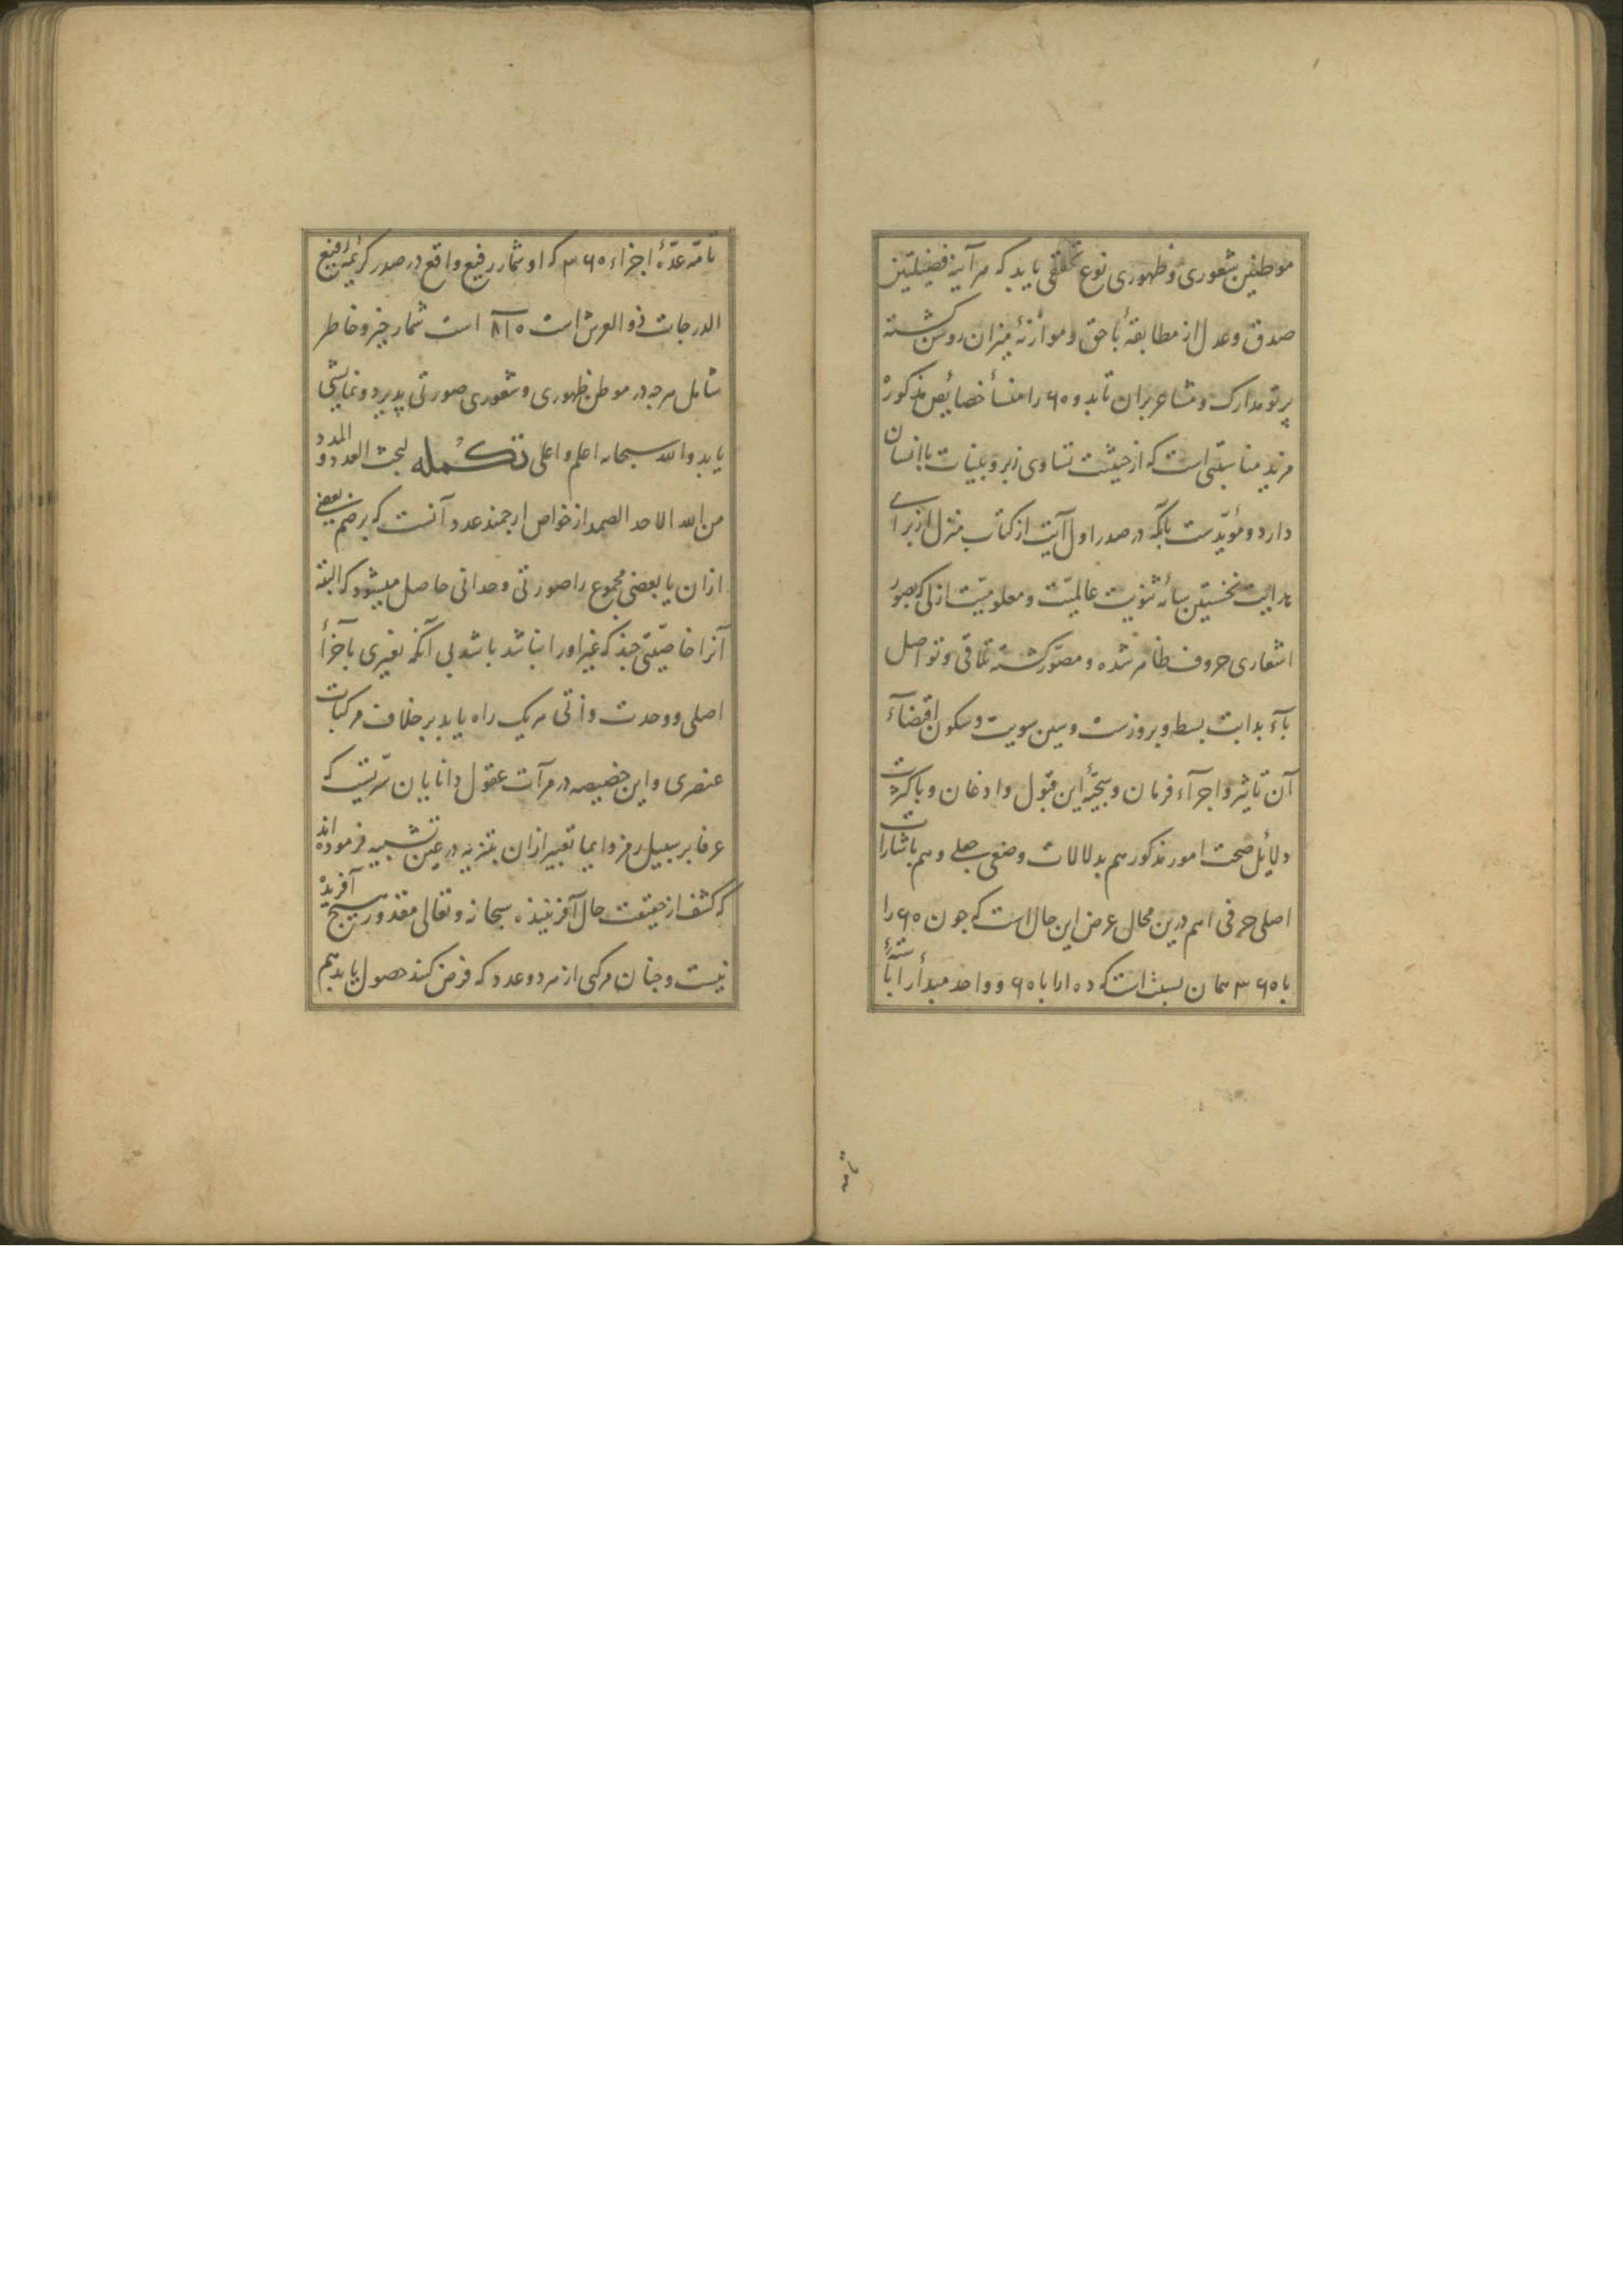 موطنین شعوری و ظهوری نوع تحققی یابد که هر آینه فضیلتین
صدق و عدل از مطابقهٔ با حق و موازنهٔ میزان روشن کشته
پرتو مدارک و مشاعر بران تابد و ۶۰ را منشأ خصایص مذکوره
مزید مناسبتی است که از حیثیت تساوی زبر و بینات با انسان
دارد و مؤیدست بآنکه در صدر اول آیت از کتاب منزل از برای
هدایت نخستین ثنویت عالمیّت و معلومیّت ازلی که بصور
اشعاری حروف ظاهر شده و مصوّر کشته تلاقی و تواصل
بآء بدایت بسط و بروزست و سین سویت و سکون اقتضاء
آن تاثیر و اجرآء فرمان و سجیّهٔ این قبول و اذعان و با کثرت
دلایل صحت امور مذکور هم بدلالات وضعی جعلی و هم باشارات
اصلی حرفی اهم درین محال عرض این حال است که جون ۶۰ را
با ۳۶۰ همان نسبت است که ۱۰ را با ۶۰ و واحد مبدأ را با ستهٔ
تامّه عدّهٔ اجزاء ۳۶۰ که او شمار رفیع واقع در صدر کریمهٔ رفیع
الدرجات ذو العرش است ۸۱۰ است شمار خبر و خاطر
شامل هرجه در موطن ظهوری و شعوری صورتی پذیرد و نمایشی
یابد والله سبحانه اعلم و اعلی تکمله لبحث العدد و المدد
من الله الاحد الصمد از خواص ارجمند عدد آنست که بر ضم بعضی
ازان با بعضی مجموع را صورتی وحدانی حاصل میشود که البته
آنرا خاصیّتی جند که غیر او را نباشد باشد بی آنکه تغیری باجزأ
اصلی و وحدت ذاتی هر یک راه یابد بر خلاف مرکبات
عنصری و این خصیصه در مرآت عقول دانایان سرّیست که
عرفا بر سبیل رمز و ایما تعبیر ازان بتنزیه در عین تشبیه فرموده‌اند
که کشف از حقیقت حال آفریننده سبحانه و تعالی مقدور هیچ آفریده
نیست و جنان مرکبی از هر دو عدد که فرض کنند حصول یابد هم